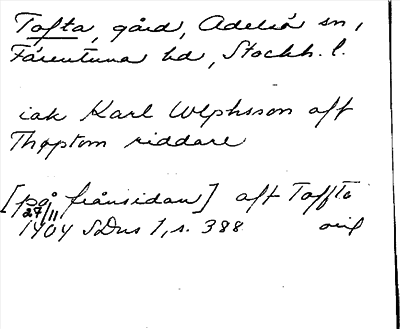 Tofta, gård, Adelsö sn,
Färentuna hd, Stockh. l.
iak Karl Wlphsson aff
Thoptom riddare
[på frånsidan] aff Toffto
27/11
1404 SDns 1, s. 388 oril